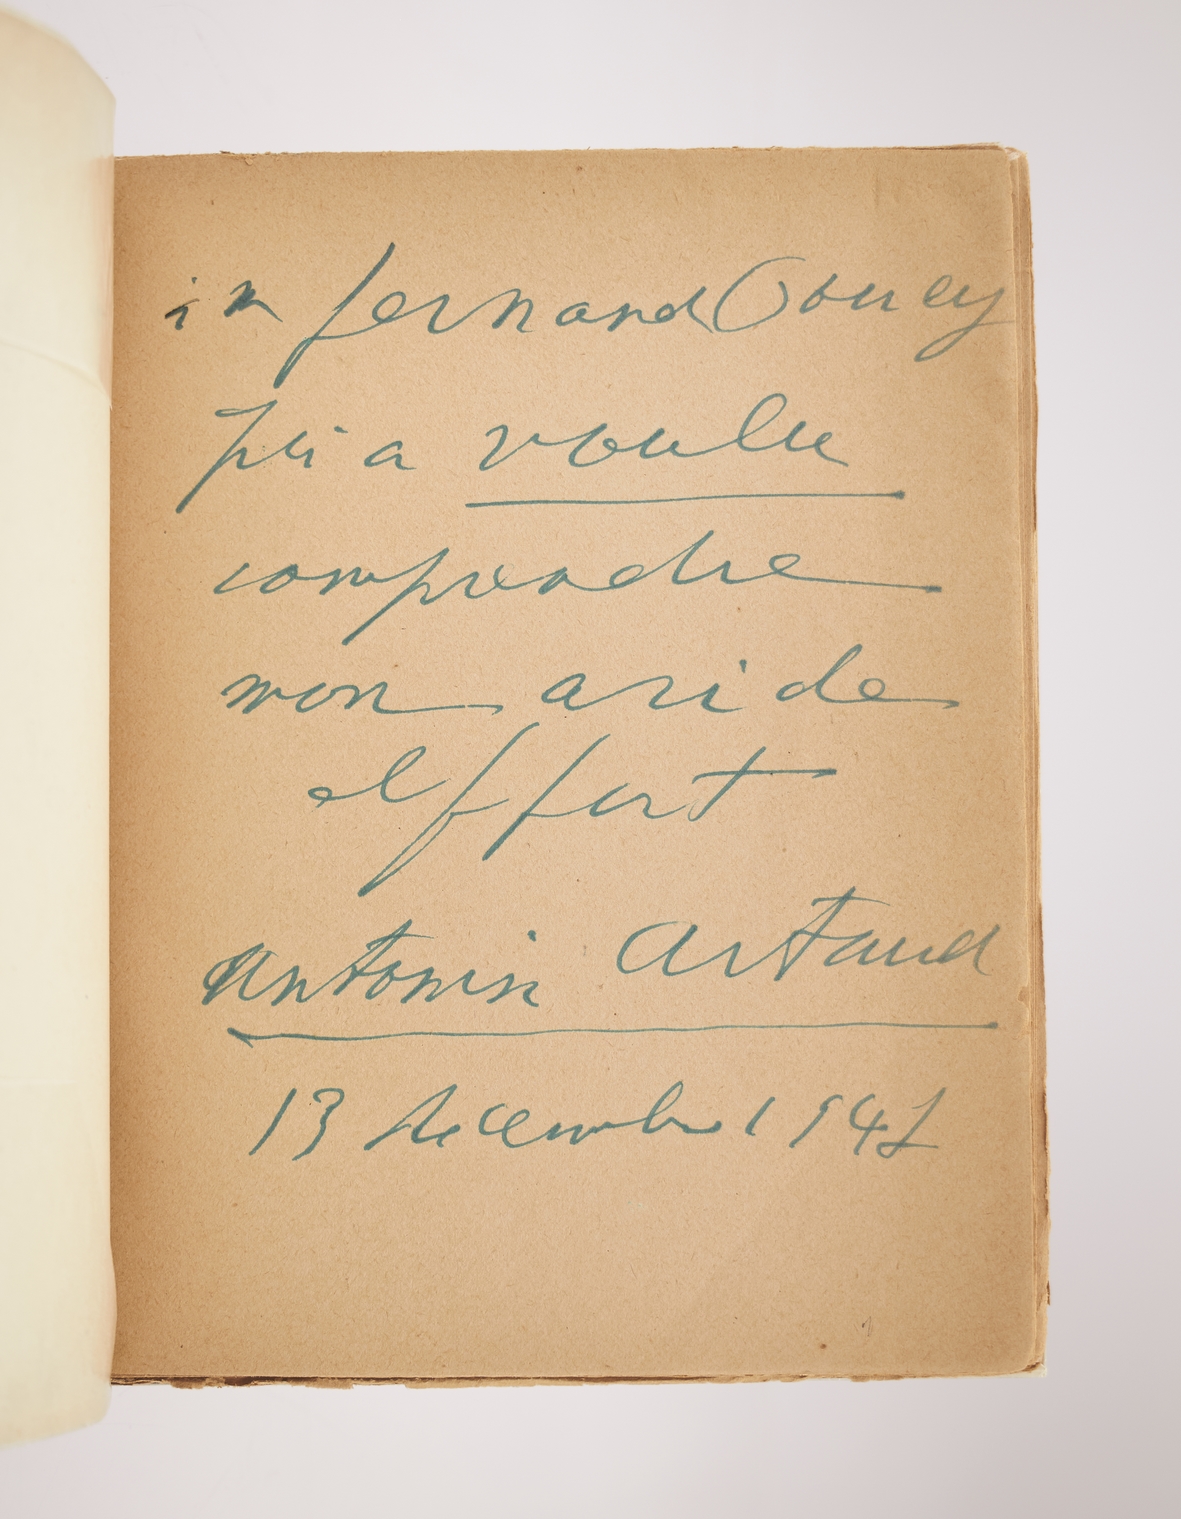 fernand Pouey
qui a voulu
comprendre
mon aride
effort
antonin Artaud
13 decembre 1947